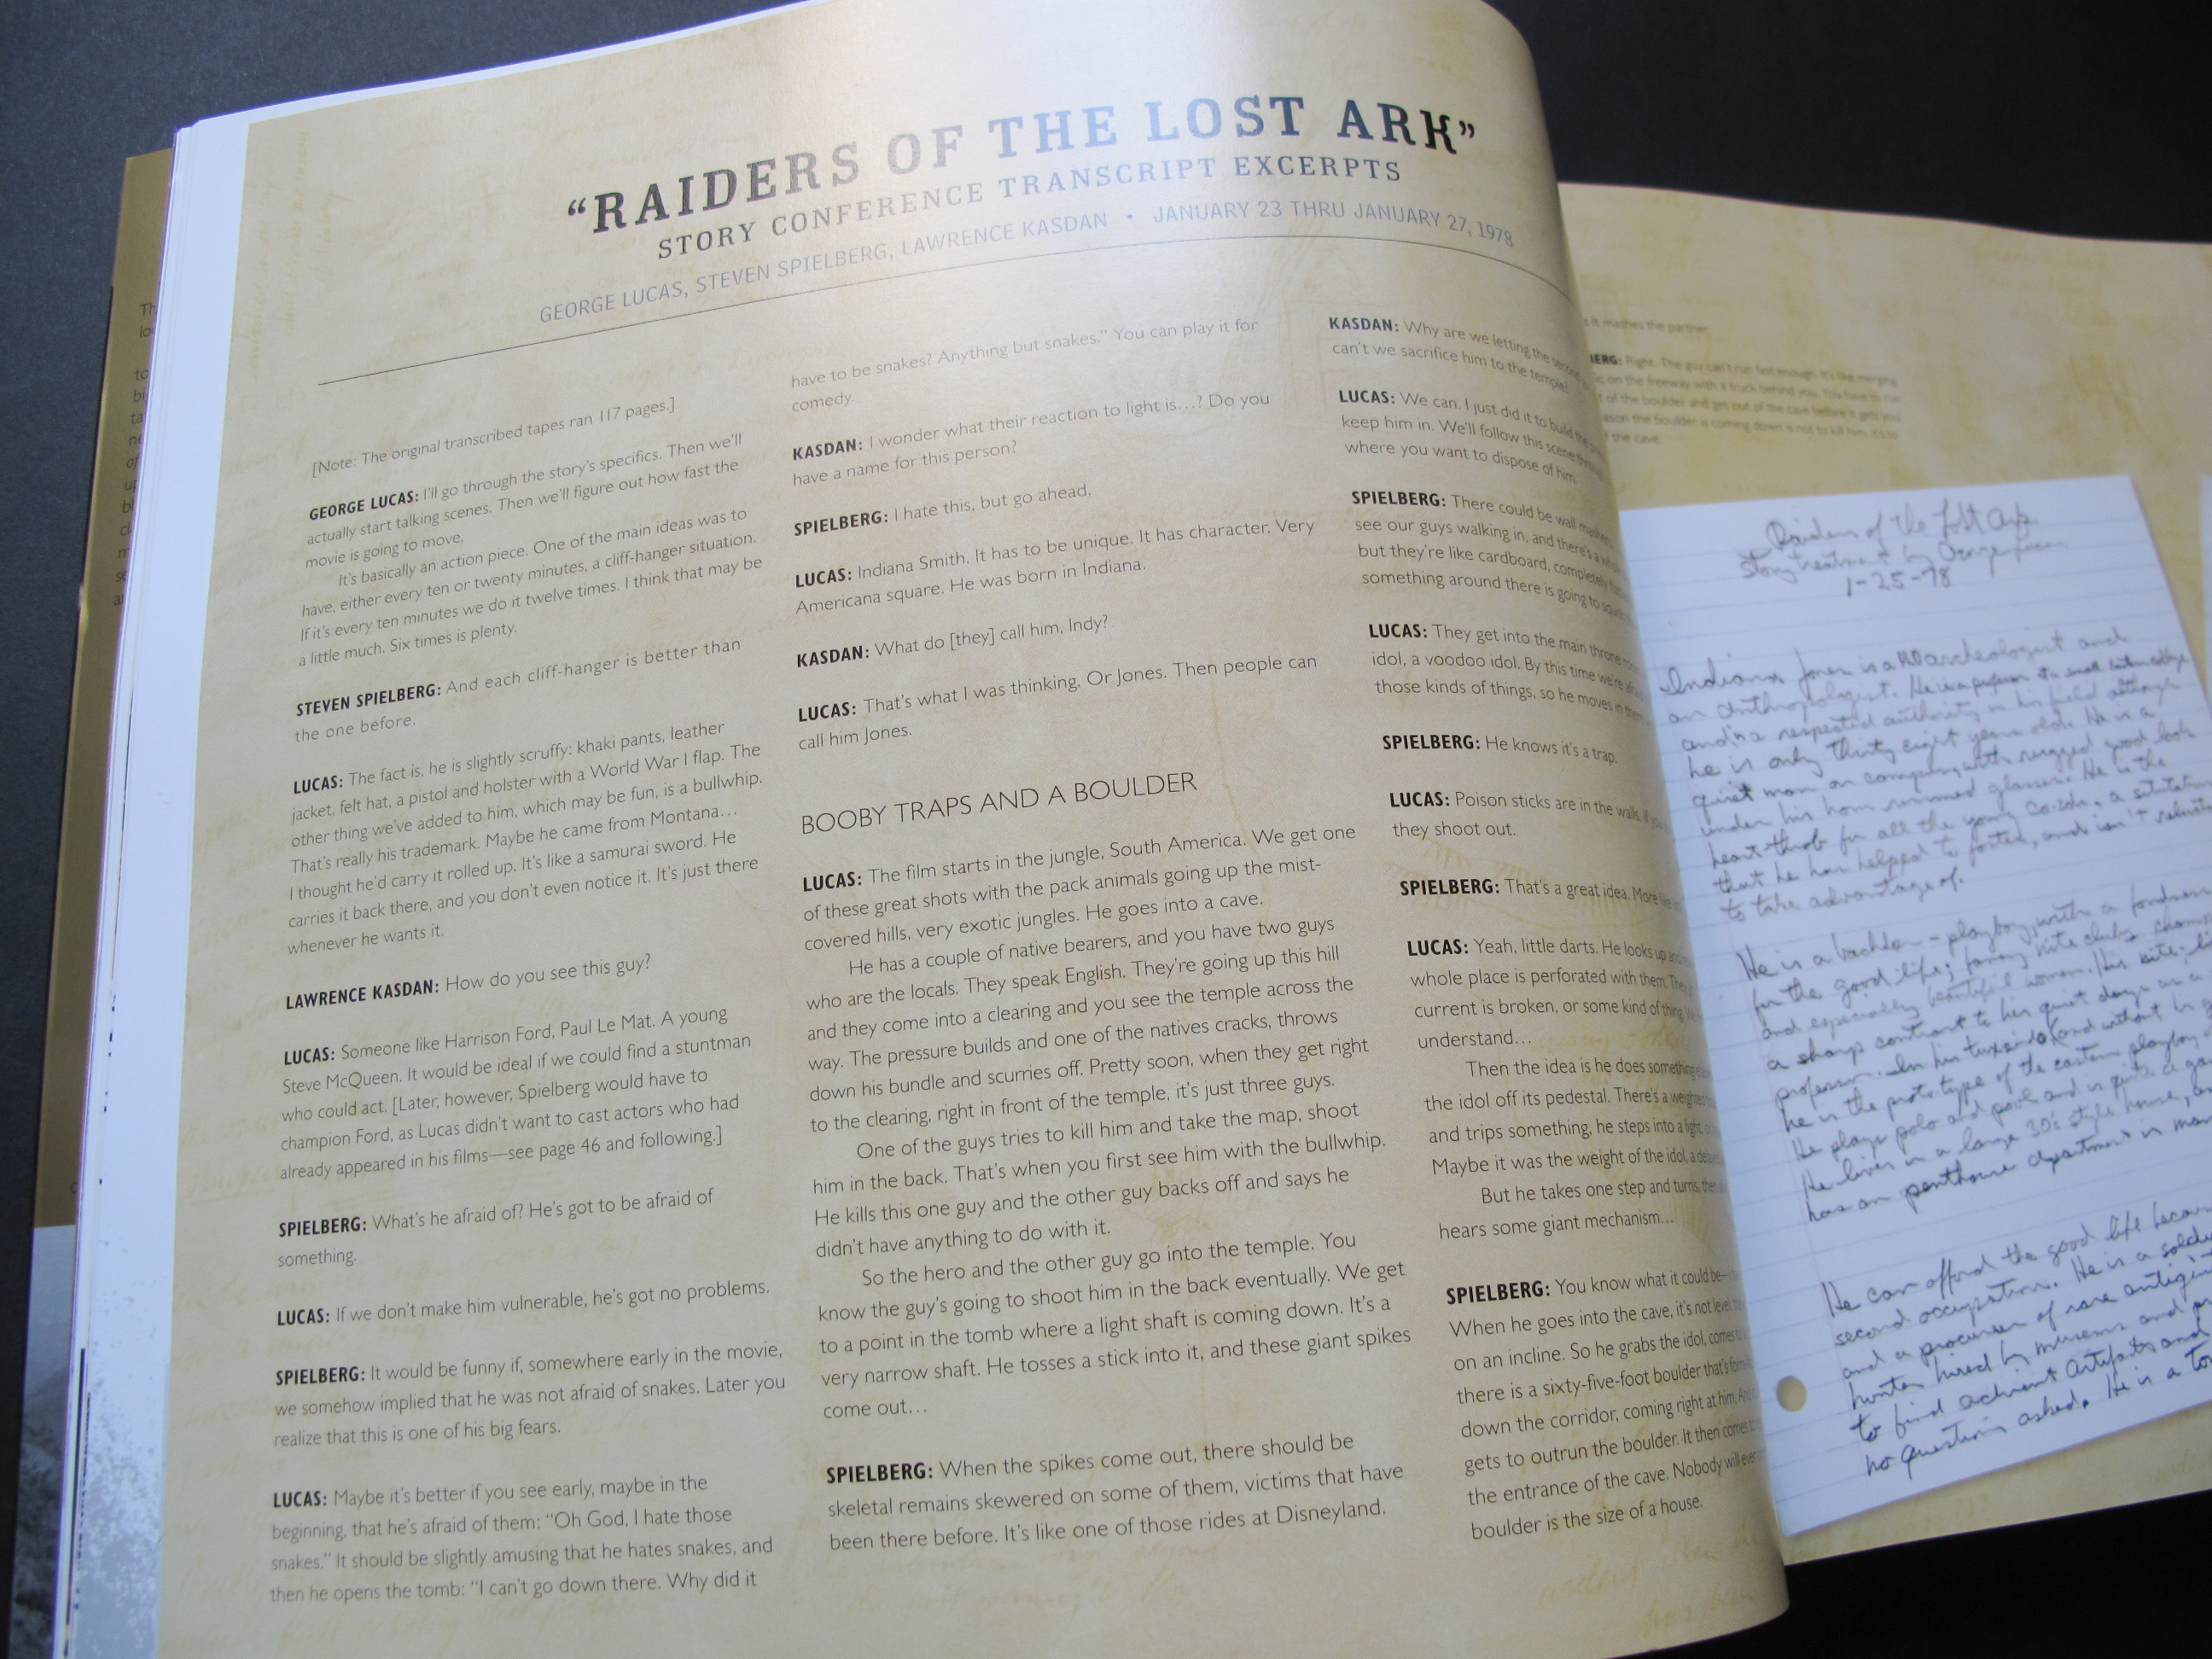 “RAIDERS OF THE LOST ARK”
STORY CONFERENCE TRANSCRIPT EXCERPTS
GEORGE LUCAS, STEVEN SPIELBERG, LAWRENCE KASDAN • JANUARY 23 THRU JANUARY 27, 1978
[Note: The original transcribed tapes ran 117 pages.]
GEORGE LUCAS: I'll go through the story's specifics. Then we'll
actually start talking scenes. Then we'll figure out how fast the
movie is going to move.
It's basically an action piece. One of the main ideas was to
have, either every ten or twenty minutes, a cliff-hanger situation.
If it's every ten minutes we do it twelve times. I think that may be
a little much. Six times is plenty.
STEVEN SPIELBERG: And each cliff-hanger is better than
the one before.
LUCAS: The fact is, he is slightly scruffy: khaki pants, leather
jacket, felt hat, a pistol and holster with a World War I flap. The
other thing we've added to him, which may be fun, is a bullwhip.
That's really his trademark. Maybe he came from Montana…
I thought he'd carry it rolled up. It's like a samurai sword. He
carries it back there, and you don't even notice it. It's just there
whenever he wants it.
LAWRENCE KASDAN: How do you see this guy?
LUCAS: Someone like Harrison Ford, Paul Le Mat. A young
Steve McQueen. It would be ideal if we could find a stuntman
who could act. [Later, however, Spielberg would have to
champion Ford, as Lucas didn't want to cast actors who had
already appeared in his films—see page 46 and following.]
SPIELBERG: What's he afraid of? He's got to be afraid of
something.
LUCAS: If we don't make him vulnerable, he's got no problems.
SPIELBERG: It would be funny if, somewhere early in the movie,
we somehow implied that he was not afraid of snakes. Later you
realize that this is one of his big fears.
LUCAS: Maybe it's better if you see early, maybe in the
beginning, that he's afraid of them: “Oh God, I hate those
snakes.” It should be slightly amusing that he hates snakes, and
then he opens the tomb: “I can't go down there. Why did it
have to be snakes? Anything but snakes.” You can play it for
comedy.
KASDAN: I wonder what their reaction to light is…? Do you
have a name for this person?
SPIELBERG: I hate this, but go ahead.
LUCAS: Indiana Smith. It has to be unique. It has character. Very
Americana square. He was born in Indiana.
KASDAN: What do [they] call him, Indy?
LUCAS: That's what I was thinking. Or Jones. Then people can
call him Jones.
BOOBY TRAPS AND A BOULDER
LUCAS: The film starts in the jungle, South America. We get one
of these great shots with the pack animals going up the mist-
covered hills, very exotic jungles. He goes into a cave.
He has a couple of native bearers, and you have two guys
who are the locals. They speak English. They're going up this hill
and they come into a clearing and you see the temple across the
way. The pressure builds and one of the natives cracks, throws
down his bundle and scurries off. Pretty soon, when they get right
to the clearing, right in front of the temple, it's just three guys.
One of the guys tries to kill him and take the map, shoot
him in the back. That's when you first see him with the bullwhip.
He kills this one guy and the other guy backs off and says he
didn't have anything to do with it.
So the hero and the other guy go into the temple. You
know the guy's going to shoot him in the back eventually. We get
to a point in the tomb where a light shaft is coming down. It's a
very narrow shaft. He tosses a stick into it, and these giant spikes
come out…
SPIELBERG: When the spikes come out, there should be
skeletal remains skewered on some of them, victims that have
been there before. It's like one of those rides at Disneyland.
KASDAN: Why are we letting the second
can't we sacrifice him to the temple?
LUCAS: We can. I just did it to build the
keep him in. We'll follow this scene through
where you want to dispose of him.
SPIELBERG: There could be wall mashers
see our guys walking in, and there's a
but they're like cardboard, completely
something around there is going to
LUCAS: They get into the main throne
idol, a voodoo idol. By this time we're
those kinds of things, so he moves in
SPIELBERG: He knows it's a trap.
LUCAS: Poison sticks are in the walls. If
they shoot out.
SPIELBERG: That's a great idea. More
LUCAS: Yeah, little darts. He looks up and
whole place is perforated with them.
current is broken, or some kind of thing.
understand…
Then the idea is he does something
the idol off its pedestal. There's a
and trips something, he steps into a light,
Maybe it was the weight of the idol, a
But he takes one step and turns,
hears some giant mechanism…
SPIELBERG: You know what it could be—
When he goes into the cave, it's not level,
on an incline. So he grabs the idol, comes
there is a sixty-five-foot boulder that's
down the corridor, coming right at him.
gets to outrun the boulder. It then comes
the entrance of the cave. Nobody will ever
boulder is the size of a house.
it mashes the partner.
Right. The guy can't run fast enough. It's like merging
on the freeway with a truck behind you. You have to run
of the boulder and get out of the cave before it gets you
the boulder is coming down is not to kill him, it's to
the cave.
Raiders of the Lost Ark
Story treatment by George Lucas
1-25-78
Indiana Jones is a PhD archeologist and
an anthropologist. He is a professor at a small
and is a respected authority in his field although
he is only thirty eight years old. He is a
quiet man on campus, with rugged good looks
under his horn rimmed glasses. He is the
heart throb for all the young co-eds, a
that he has helped to foster, and isn't
to take advantage of.
He is a bachelor - playboy, with a fondness
for the good life; fancy nite clubs,
and especially beautiful women. His
a sharp contrast to his quiet days as a
professor. In his tuxedo (and without
he is the prototype of the eastern playboy
He plays polo and pool and is quite a
He lives in a large 30's style house,
has an penthouse apartment in
He can afford the good life
second occupation. He is a
and a procurer of rare
hunter hired by museums and
to find achient Artifacts and
no questions asked. He is a